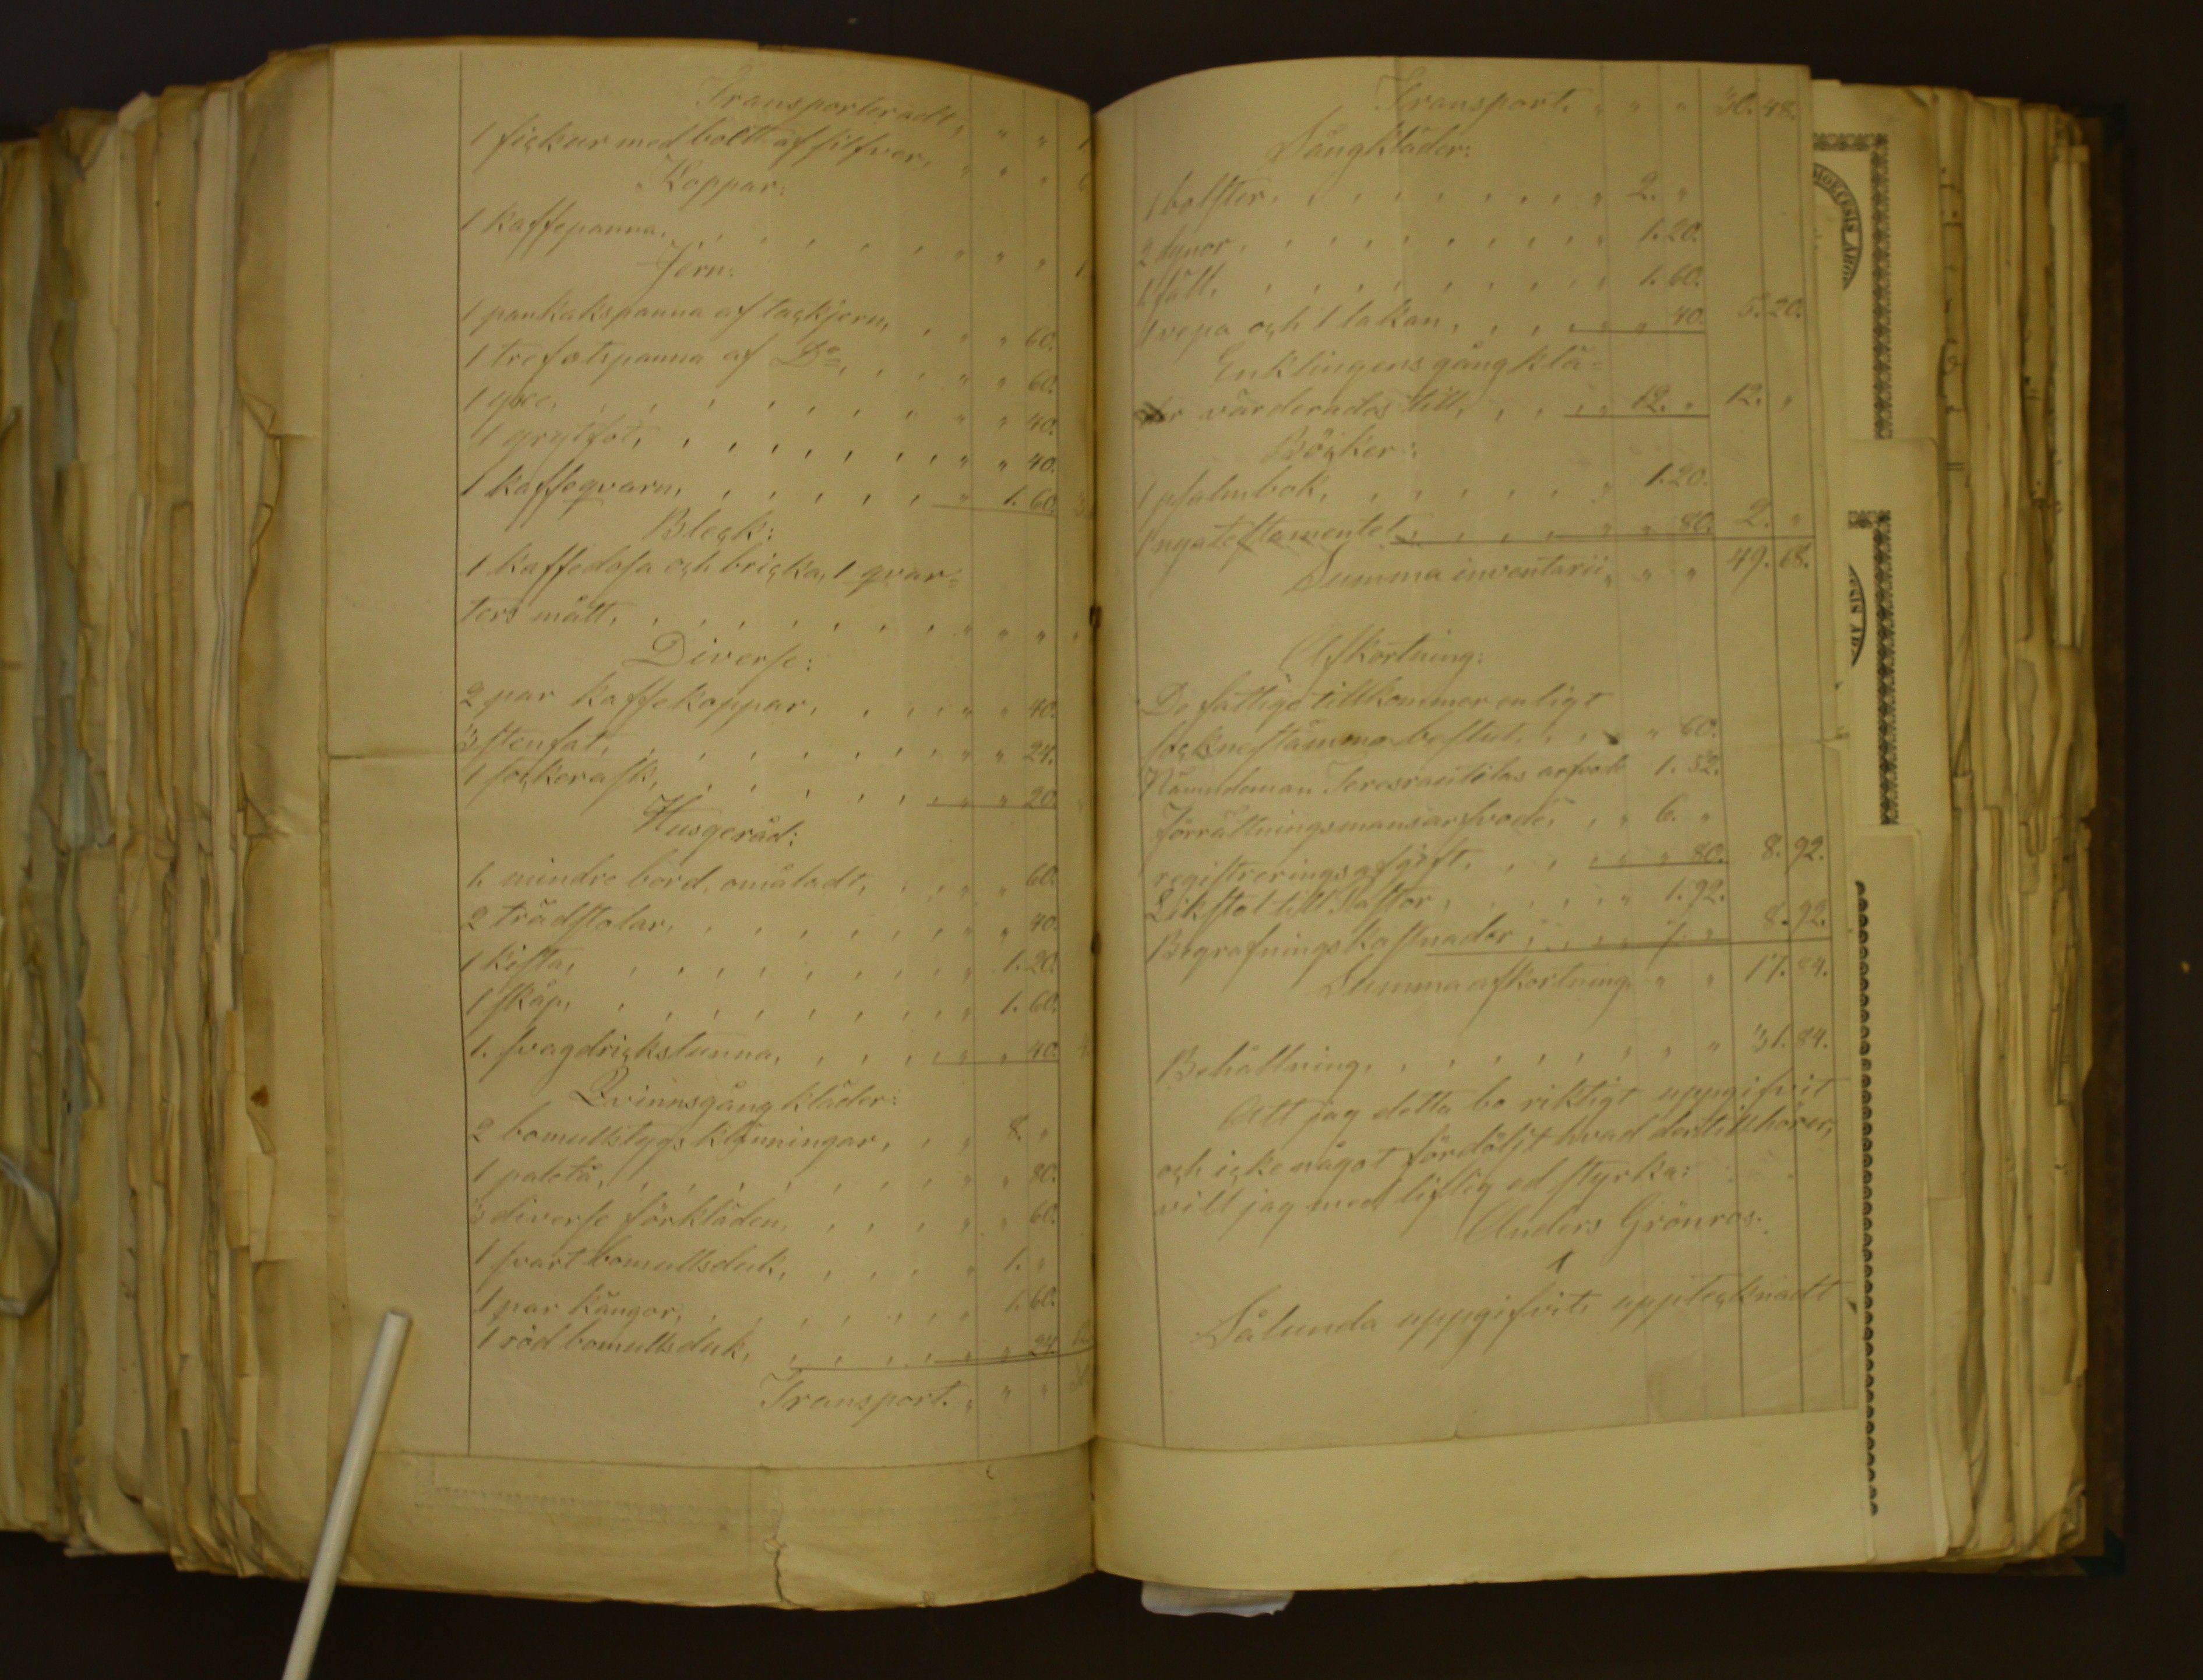 Transporteradt, " " 1
1 fickur med boett af silfver, " " " 6
Koppar:
1 kaffepanna, " " " 1
Jern:
1 pankakspanna af tackjern, " " 60.
1 trefotspanna af Do, " " 60.
1 yxe, " " 40.
1 grytfot, " " 40.
1 kaffeqvarn, " 1. 60. 3
Bleck:
1 kaffedosa och bricka, 1 qvar=
ters mått, " " "
Diverse:
2 par kaffekoppar, " " 40.
3 stenfat, " " 24.
1 sockerask, " " 20.
Husgeråd:
1. mindre bord, omåladt, " " 60.
2 trädstolar, " " 40.
1 kista, " 1. 20.
1 skåp, " 1. 60.
1. svagdrickstunna, " " 40.
Qvinnsgångkläder:
2 bomullstygs klädningar, " 8. "
1 paletå, " " 80.
3 diverse förkläden, " " 60.
1 svart bomullsduk, " 1. "
1 par kängor, " 1. 60.
1 röd bomullsduk, " " 24. 12
Transport. " " " 30
Transport. " " " 30. 48.
Sängkläder:
1 bolster, " 2. "
2 dynor, " 1. 20.
1 fäll, " 1. 60.
1 vepa och 1 lakan, " " 40. 5. 20.
Enklingens gångklä=
der värderades till, " 12. " 12. "
Böcker:
1 psalmbok, " 1. 20.
1 nya testamentet, " " 80. 2. "
Summa inventarii, " " " 49. 68.
Afkortning:
De fattige tillkommer enligt
socknestämmo beslut, " " 60.
Nämndeman arfvode 1. 52.
Förrättningsmansarfvode, " 6. "
registreringsafgift, " " 80. 8. 92.
Likstol till Pastor, " 1. 92.
Begrafningskostnader, " 7. " 8. 92.
Summa afkortning " " 17. 84.
Behållning, " " 31. 84.
Att jag detta bo riktigt uppgifvit
och icke något fördöljt hvad dertill hörer,
vill jag med liflig ed styrka:
Anders Grönros.
Sålunda uppgifvit, upptecknadt